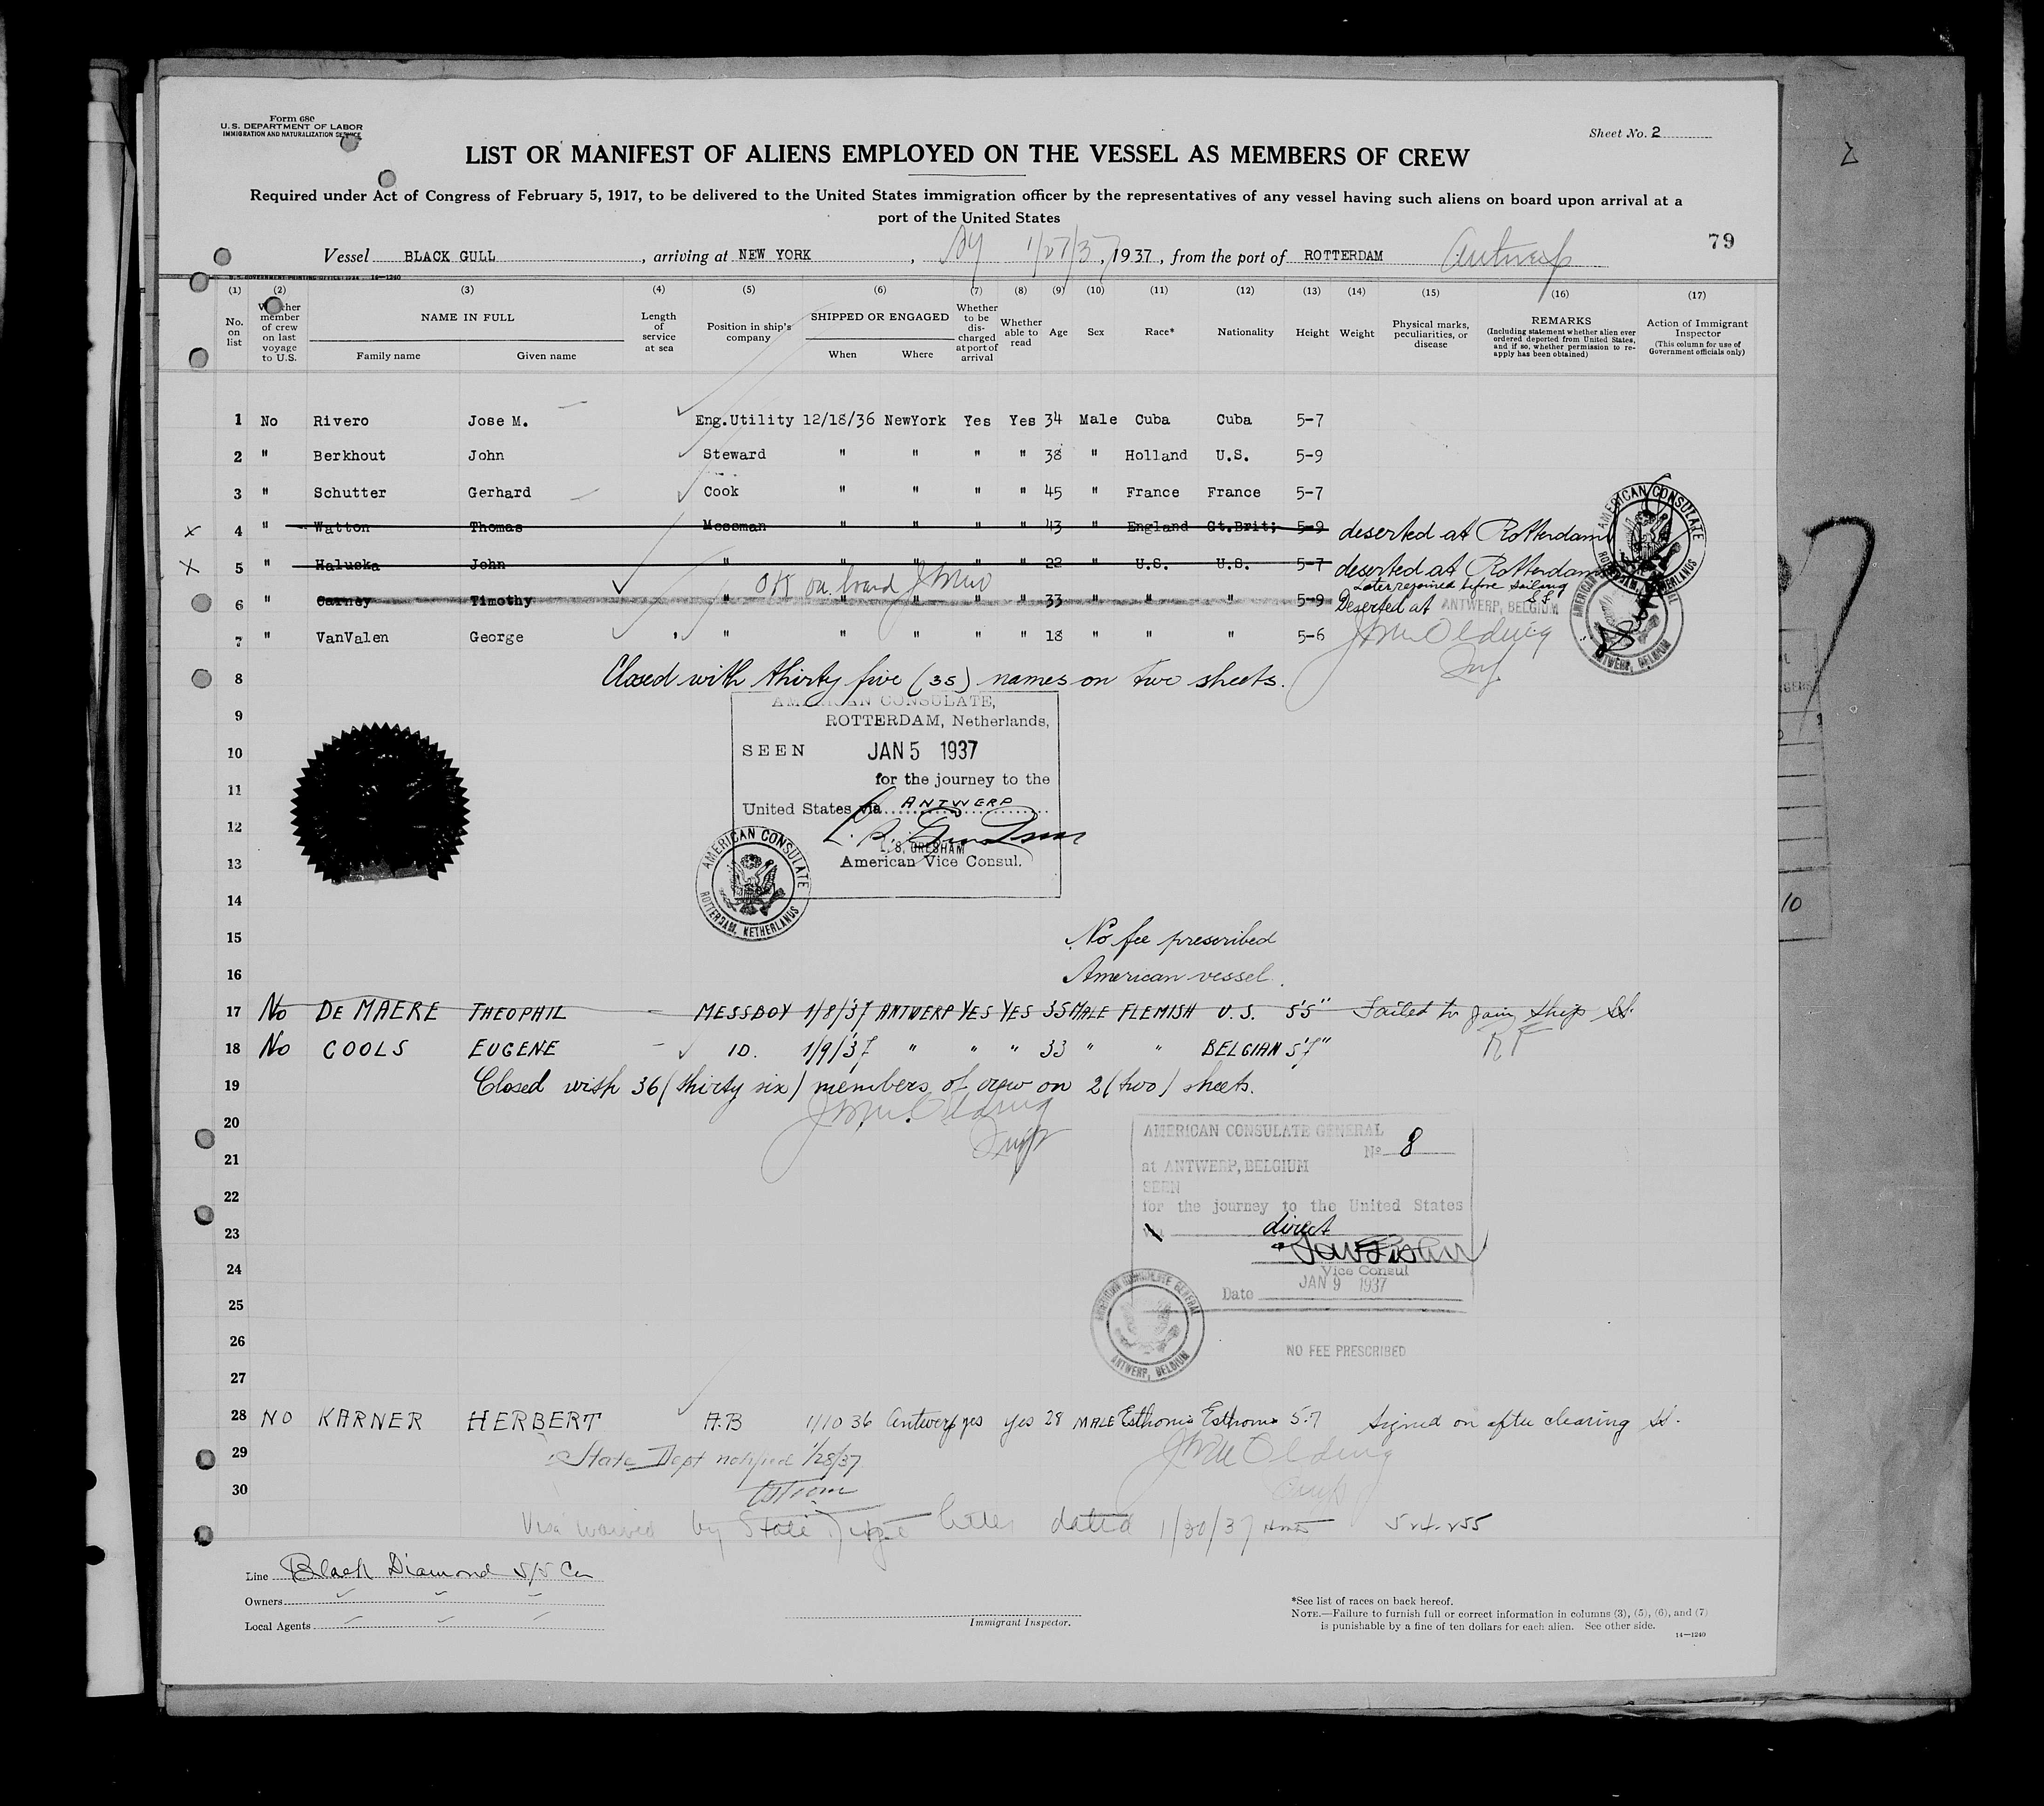 Form 680
U.S. DEPARTMENT OF LABOR
IMMIGRATION AND NATURALIZATION SERVICE
Sheet No. 2
LIST OR MANIFEST OF ALIENS EMPLOYED ON THE VESSEL AS MEMBERS OF CREW
Required under Act of Congress of February 5, 1917, to be delivered to the United States immigration officer by the representatives of any vessel having such aliens on board upon arrival at a
port of the United States
79
Vessel BLACK GULL, arriving at NEW YORK, 1/27/37, 1937, from the port of ROTTERDAM Antwerp
U.S. GOVERNMENT PRINTING OFFICE: 1934 14—1240
(1) (2) (3) (4) (5) (6) (7) (8) (9) (10) (11) (12) (13) (14) (15) (16) (17)
No. on list
Whether member of crew on last voyage to U.S.
NAME IN FULL
Family name Given name
Length of service at sea
Position in ship's company
SHIPPED OR ENGAGED
When Where
Whether to be discharged at port of arrival
Whether able to read
Age Sex Race* Nationality Height Weight
Physical marks, peculiarities, or disease
REMARKS
(Including statement whether alien ever ordered deported from United States, and if so, whether permission to reapply has been obtained)
Action of Immigrant Inspector
(This column for use of Government officials only)
1 No Rivero Jose M. Eng.Utility 12/18/36 NewYork Yes Yes 34 Male Cuba Cuba 5-7
2 " Berkhout John Steward " " " " 38 " Holland U.S. 5-9
3 " Schutter Gerhard Cook " " " " 45 " France France 5-7
x 4 " Watton Thomas Messman " " " " 43 " England Gt.Brit; 5-9 deserted at Rotterdam
x 5 " Haluska John " " " " " 22 " U.S. U.S. 5-7 deserted at Rotterdam
OK on board
Later rejoined before sailing
6 " Carney Timothy " " " " " 33 " " " 5-9 Deserted at ANTWERP, BELGIUM
7 " VanValen George " " " " " 18 " " " 5-6
AMERICAN CONSULATE
ROTTERDAM, NETHERLANDS
ANTWERP, BELGIUM
8 Closed with thirty five (35) names on two sheets.
9
10
11
12
13
14
AMERICAN CONSULATE,
ROTTERDAM, Netherlands,
SEEN JAN 5 1937
for the journey to the
United States via ANTWERP
L. S. GRESHAM
American Vice Consul.
AMERICAN CONSULATE
ROTTERDAM, NETHERLANDS
15 No fee prescribed
16 American vessel.
17 No DE MAERE THEOPHIL MESSBOY 1/8/37 ANTWERP YES YES 35 MALE FLEMISH U.S. 5'5" Failed to join ship
18 No COOLS EUGENE ID. 1/9/37 " " " 33 " " BELGIAN 5'7"
19 Closed with 36 (thirty six) members of crew on 2 (two) sheets.
20
21
22
23
24
25
26
27
AMERICAN CONSULATE GENERAL
No 8
at ANTWERP, BELGIUM
SEEN
for the journey to the United States
direct
Vice Consul
Date JAN 9 1937
AMERICAN CONSULATE GENERAL
ANTWERP, BELGIUM
NO FEE PRESCRIBED
28 NO KARNER HERBERT A.B 1/10 36 Antwerp yes yes 28 MALE Esthonia Esthonia 5-7 Signed on after clearing
29 State Dept notified 1/28/37
30
Visa waived by State Dept letter dated 1/30/37
Line Black Diamond S/S Co
Owners
Local Agents
Immigrant Inspector.
*See list of races on back hereof.
NOTE.—Failure to furnish full or correct information in columns (3), (5), (6), and (7)
is punishable by a fine of ten dollars for each alien. See other side.
14—1240
10